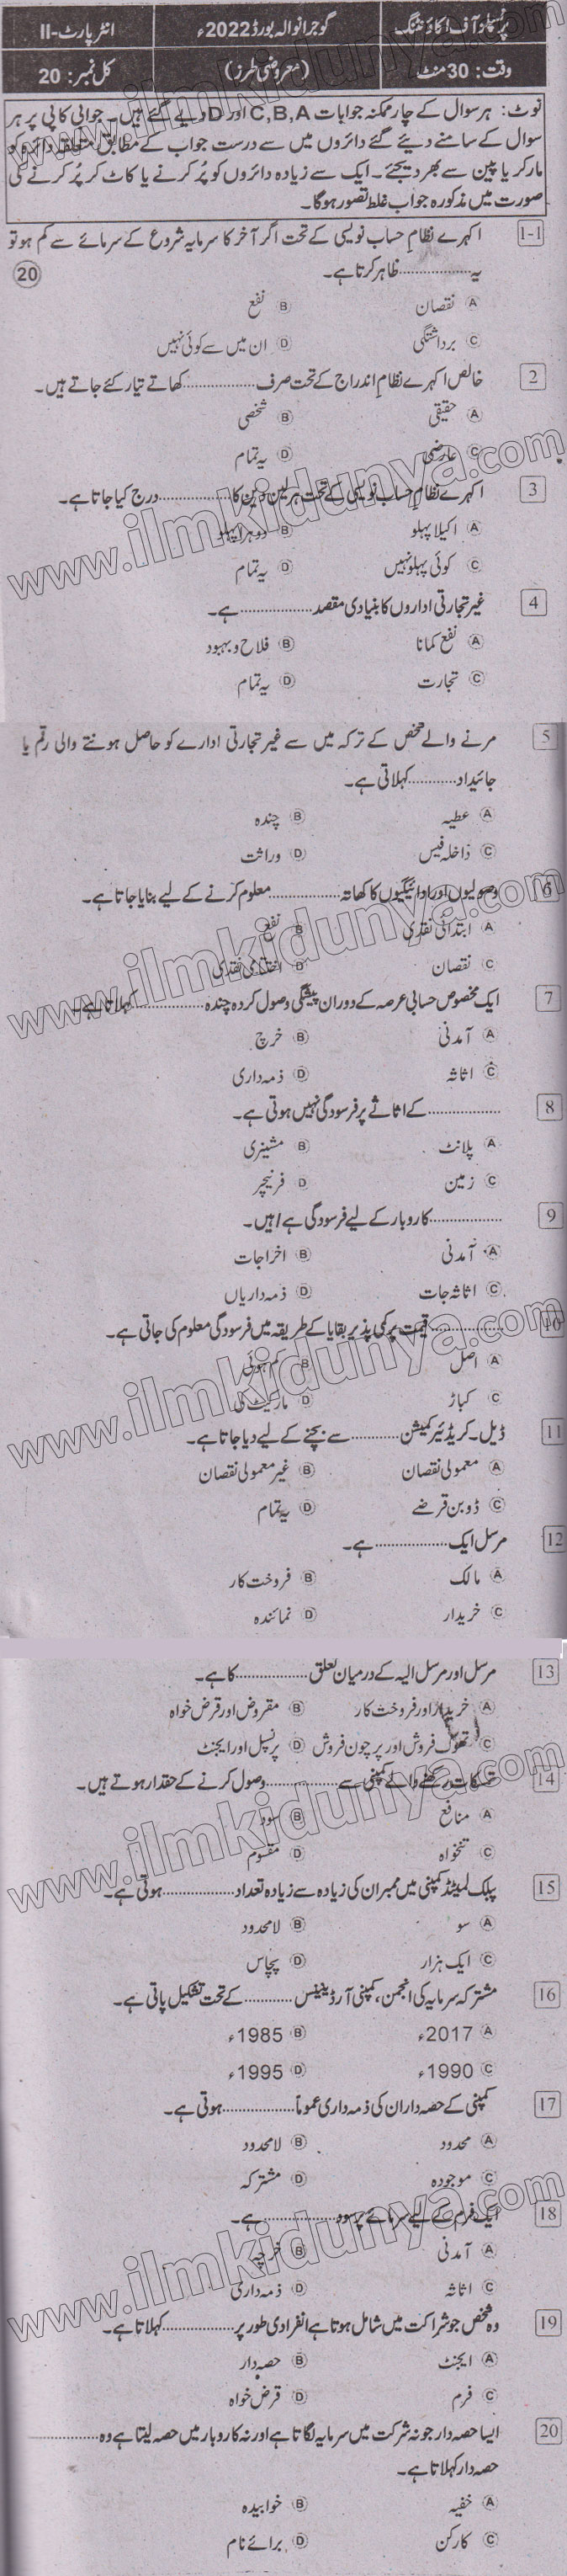 پرنسپلز آف اکاؤنٹنگ گوجرانوالہ بورڈ 2022ء انٹر پارٹ-II
وقت: 30 منٹ (معروضی طرز) کل نمبر: 20
نوٹ: ہر سوال کے چار ممکنہ جوابات C,B,A اور D دیے گئے ہیں۔ جوابی کاپی پر ہر
سوال کے سامنے دیئے گئے دائروں میں سے درست جواب کے مطابق متعلقہ دائرہ کو
مارکر یا پین سے بھر دیجئے۔ ایک سے زیادہ دائروں کو پُر کرنے یا کاٹ کر پُر کرنے کی
صورت میں مذکورہ جواب غلط تصور ہوگا۔
1-1 اکہرے نظامِ حساب نویسی کے تحت اگر آخر کا سرمایہ شروع کے سرمائے سے کم ہو تو
یہ ............ ظاہر کرتا ہے۔ 20
A نقصان B نفع
C برداشتگی D ان میں سے کوئی نہیں
2 خالص اکہرے نظامِ اندراج کے تحت صرف ............ کھاتے تیار کئے جاتے ہیں۔
A حقیقی B شخصی
C عارضی D یہ تمام
3 اکہرے نظامِ حساب نویسی کے تحت ہر لین دین کا ............ درج کیا جاتا ہے۔
A اکیلا پہلو B دوہرا پہلو
C کوئی پہلو نہیں D یہ تمام
4 غیر تجارتی اداروں کا بنیادی مقصد ............ ہے۔
A نفع کمانا B فلاح و بہبود
C تجارت D یہ تمام
5 مرنے والے شخص کے ترکہ میں سے غیر تجارتی ادارے کو حاصل ہونے والی رقم یا
جائیداد ............ کہلاتی ہے۔
A عطیہ B چندہ
C داخلہ فیس D وراثت
6 وصولیوں اور ادائیگیوں کا کھاتہ ............ معلوم کرنے کے لیے بنایا جاتا ہے۔
A ابتدائی نقدی B نفع
C نقصان D اختتامی نقدی
7 ایک مخصوص حسابی عرصہ کے دوران پیشگی وصول کردہ چندہ ............ کہلاتا ہے۔
A آمدنی B خرچ
C اثاثہ D ذمہ داری
8 ............ کے اثاثے پر فرسودگی نہیں ہوتی ہے۔
A پلانٹ B مشینری
C زمین D فرنیچر
9 ............ کاروبار کے لیے فرسودگی ہے / ہیں۔
A آمدنی B اخراجات
C اثاثہ جات D ذمہ داریاں
10 ............ قیمت پر کمی پذیر بقایا کے طریقہ میں فرسودگی معلوم کی جاتی ہے۔
A اصل B کم ہوئی
C کباڑ D مارکیٹ کی
11 ڈیل۔کریڈئیر کمیشن ............ سے بچنے کے لیے دیا جاتا ہے۔
A معمولی نقصان B غیر معمولی نقصان
C ڈوبن قرضے D یہ تمام
12 مرسل ایک ............ ہے۔
A مالک B فروخت کار
C خریدار D نمائندہ
13 مرسل اور مرسل الیہ کے درمیان تعلق ............ کا ہے۔
A خریدار اور فروخت کار B مقروض اور قرض خواہ
C تھوک فروش اور پرچون فروش D پرنسپل اور ایجنٹ
14 تمسکات رکھنے والے کمپنی سے ............ وصول کرنے کے حقدار ہوتے ہیں۔
A منافع B سود
C تنخواہ D مقسوم
15 پبلک لمیٹڈ کمپنی میں ممبران کی زیادہ سے زیادہ تعداد ............ ہوتی ہے۔
A سو B لامحدود
C ایک ہزار D پچاس
16 مشترکہ سرمایہ کی انجمن، کمپنی آرڈیننس ............ کے تحت تشکیل پاتی ہے۔
A 2017ء B 1985ء
C 1990ء D 1995ء
17 کمپنی کے حصہ داران کی ذمہ داری عموماً ............ ہوتی ہے۔
A محدود B لامحدود
C موجودہ D مشترکہ
18 ایک فرم کے لیے سرمائے پر سود ............ ہے۔
A آمدنی B خرچہ
C اثاثہ D ذمہ داری
19 وہ شخص جو شراکت میں شامل ہوتا ہے انفرادی طور پر ............ کہلاتا ہے۔
A ایجنٹ B حصہ دار
C فرم D قرض خواہ
20 ایسا حصہ دار جو نہ شرکت میں سرمایہ لگاتا ہے اور نہ کاروبار میں حصہ لیتا ہے وہ ............
حصہ دار کہلاتا ہے۔
A خفیہ B خوابیدہ
C کارکن D برائے نام
www.ilmkidunya.com
www.ilmkidunya.com
www.ilmkidunya.com
www.ilmkidunya.com
www.ilmkidunya.com
www.ilmkidunya.com